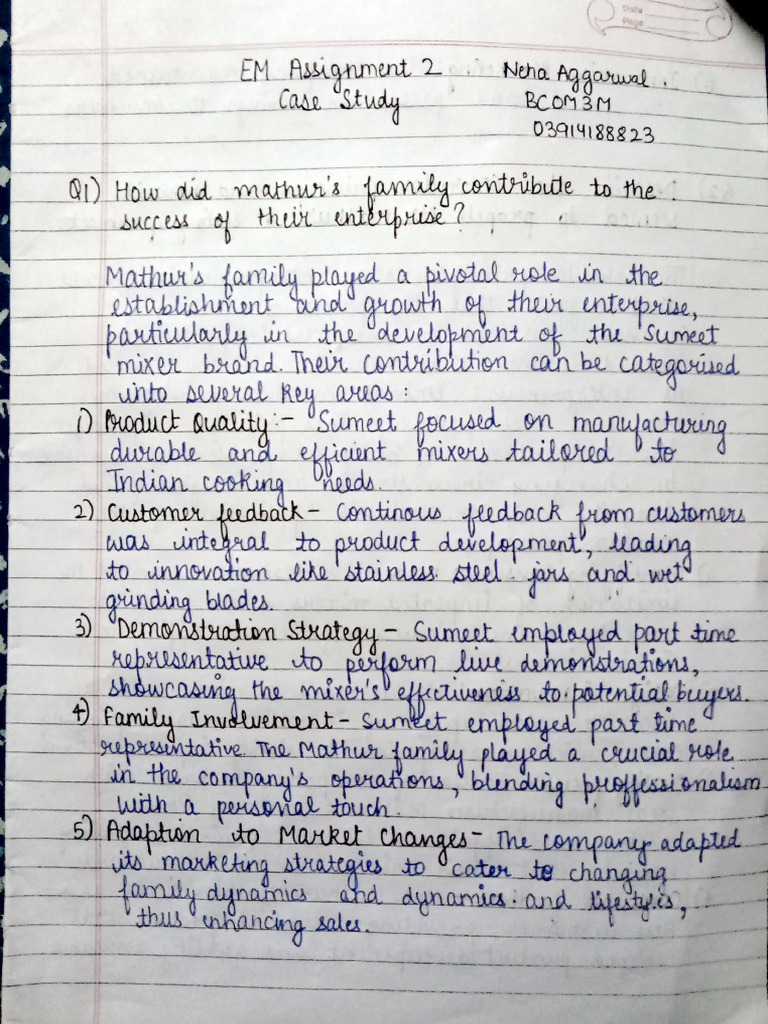 Date
Page
EM Assignment 2. Neha Aggarwal.
Case Study BCOM3M
03914188823
Q1) How did mathur's family contribute to the
success of their enterprise?
Mathur's family played a pivotal role in the
establishment and growth of their enterprise,
particularly in the development of the Sumeet
mixer brand. Their contribution can be categorised
into several key areas :
1) Product Quality:- Sumeet focused on manufacturing
durable and efficient mixers tailored to
Indian cooking needs.
2) Customer feedback - Continous feedback from customers
was integral to product development, leading
to innovation like stainless steel jars and wet
grinding blades.
3) Demonstration Strategy - Sumeet employed part time
representative to perform live demonstrations,
showcasing the mixer's effectiveness to potential buyers.
4) Family Involvement - Sumeet employed part time
representative. The Mathur family played a crucial role
in the company's operations, blending proffessionalism
with a personal touch.
5) Adaption to Market Changes - The company adapted
its marketing strategies to cater to changing
family dynamics and dynamics and lifestyles,
thus enhancing sales.